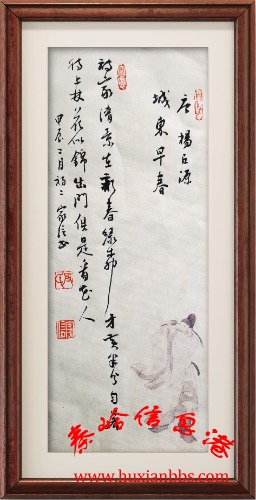 唐 楊巨源
城東早春
詩家清景在新春綠柳才黃半未勻若
待上林花似錦出門俱是看花人
甲辰二月初二 家信
信息港
www.huxianbbs.com